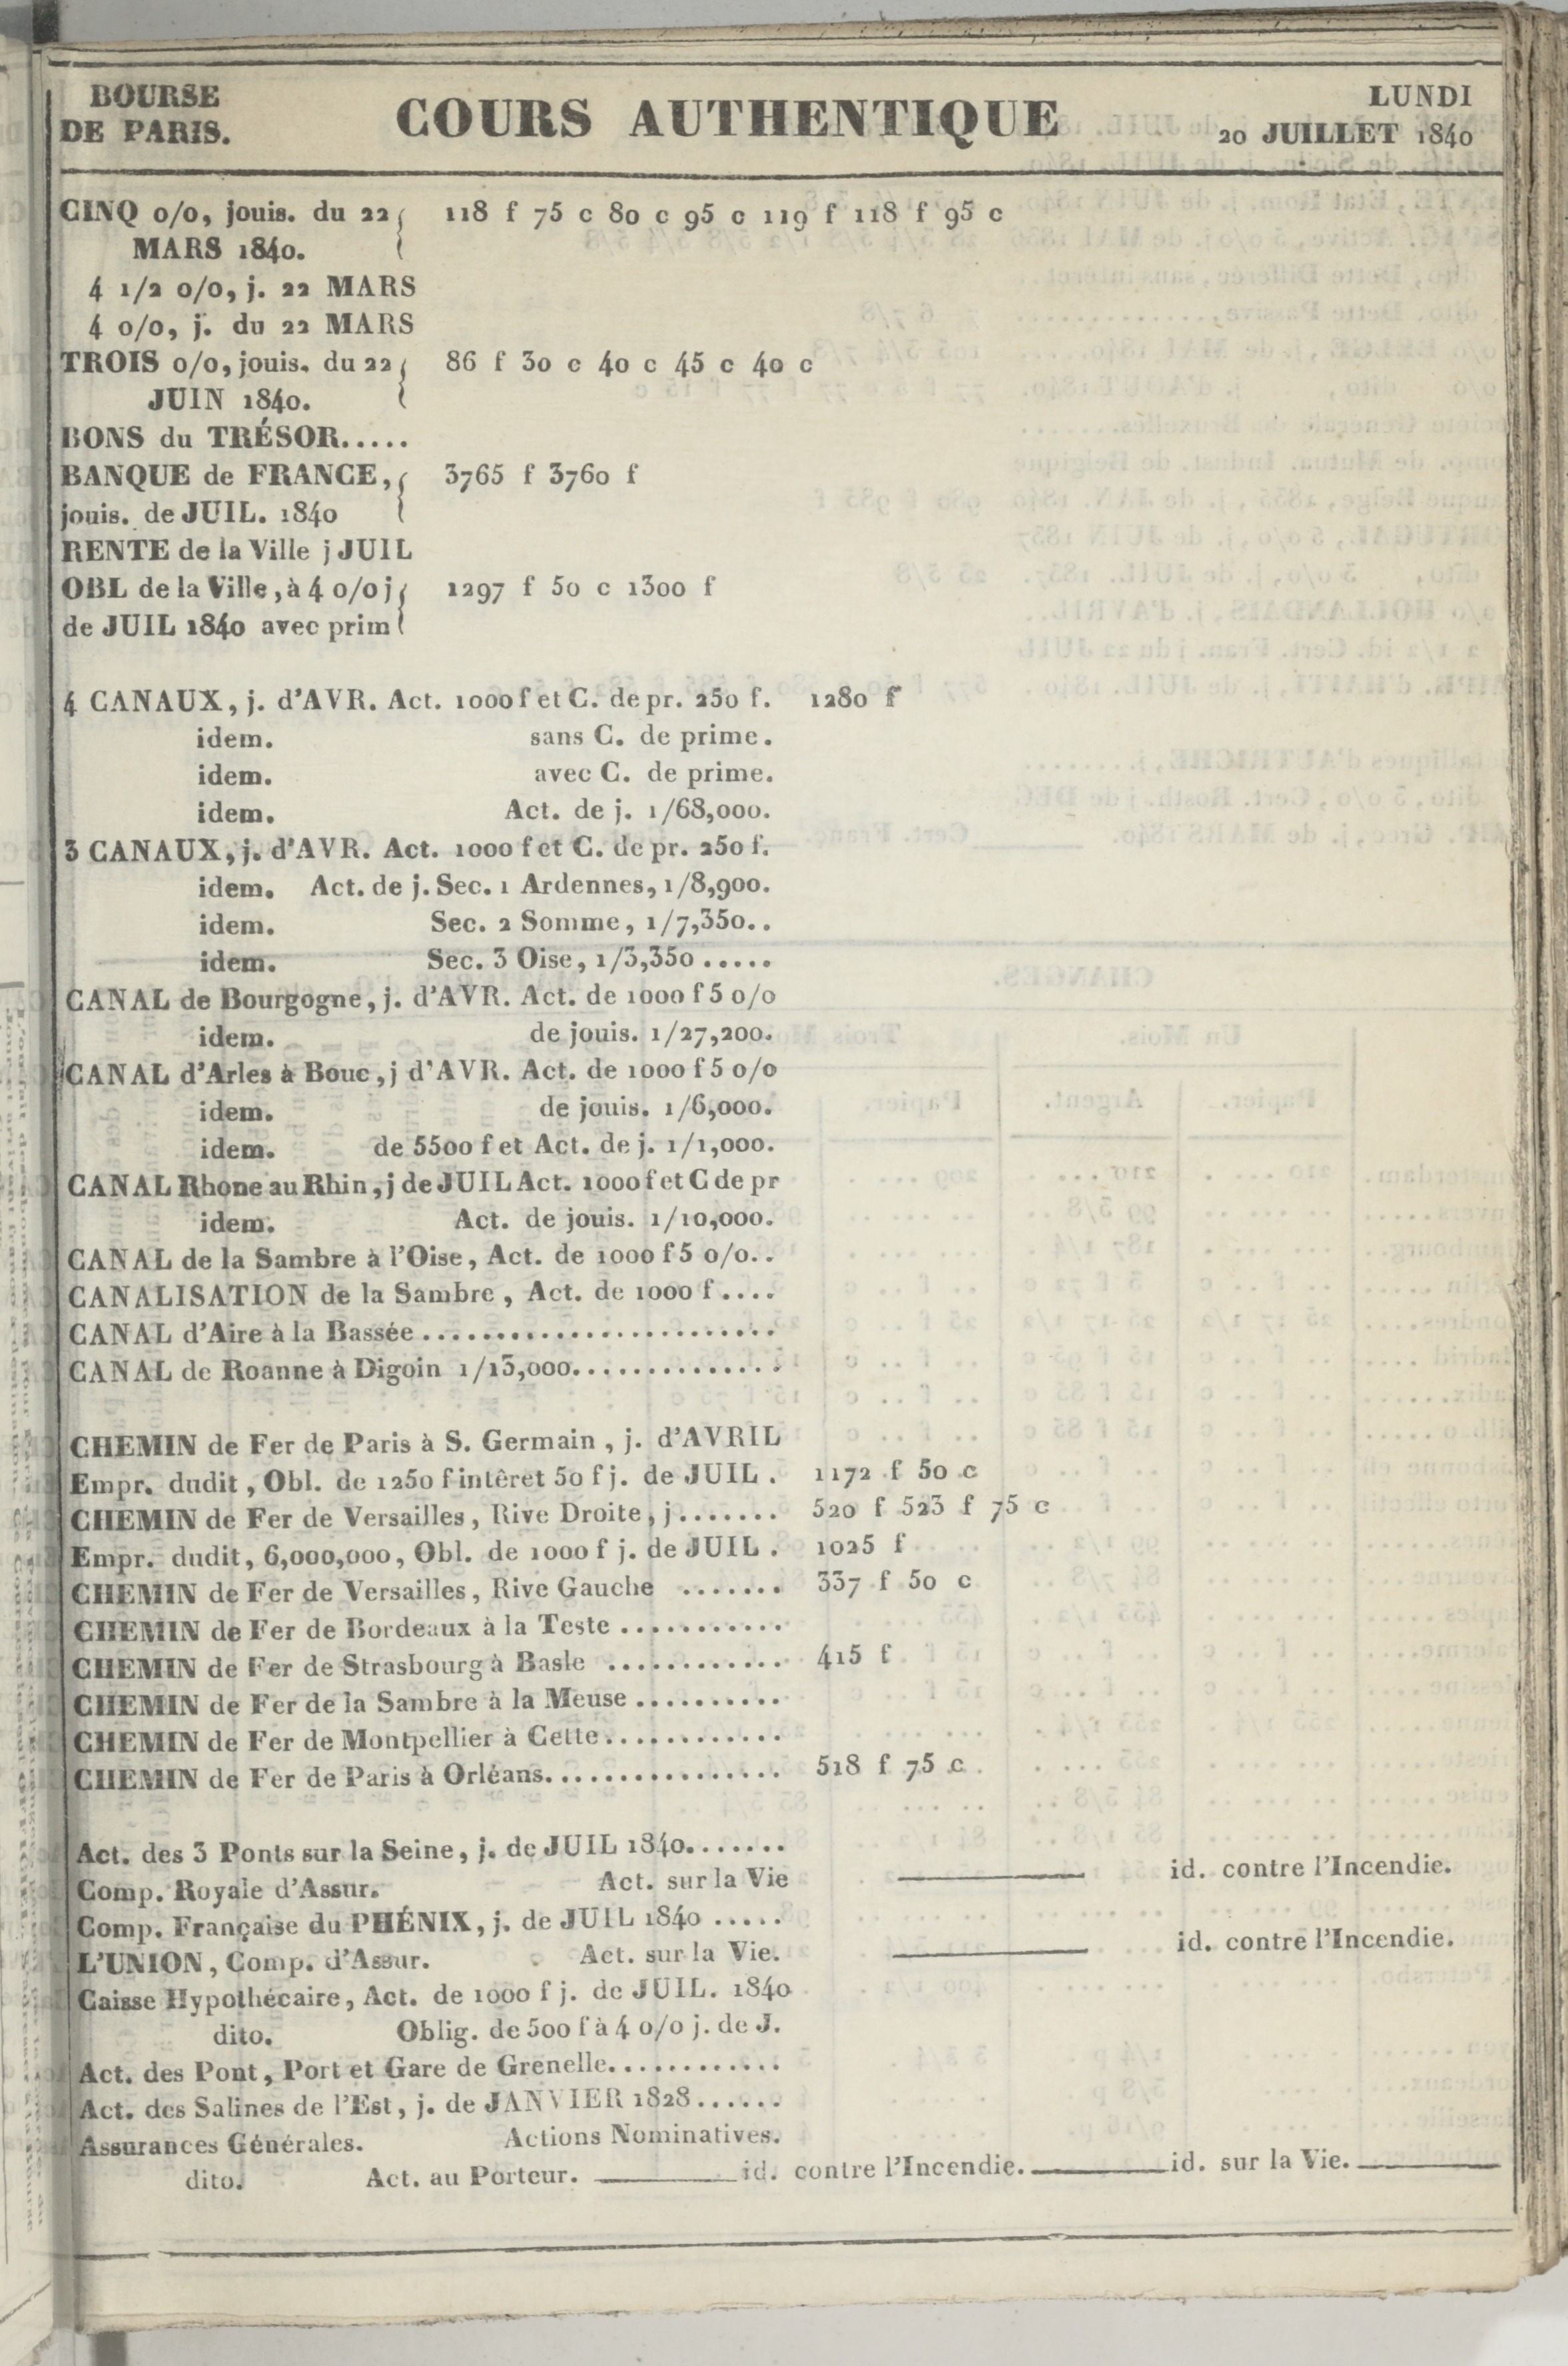 BOURSE
DE PARIS.
COURS AUTHENTIQUE
LUNDI
20 JUILLET 1840
CINQ 0/0, jouis. du 22 118 f 75 c 80 c 95 c 119 f 118 f 95 c
MARS 1840.
4 1/2 0/0, j. 22 MARS
4 0/0, j. du 22 MARS
TROIS 0/0, jouis. du 22 86 f 30 c 40 c 45 c 40 c
JUIN 1840.
BONS du TRÉSOR.....
BANQUE de FRANCE, 3765 f 3760 f
jouis. de JUIL. 1840
RENTE de la Ville j JUIL
OBL de la Ville, à 4 0/0 j 1297 f 50 c 1300 f
de JUIL 1840 avec prim
4 CANAUX, j. d'AVR. Act. 1000 f et C. de pr. 250 f. 1280 f
idem. sans C. de prime.
idem. avec C. de prime.
idem. Act. de j. 1/68,000.
3 CANAUX, j. d'AVR. Act. 1000 f et C. de pr. 250 f.
idem. Act. de j. Sec. 1 Ardennes, 1/8,900.
idem. Sec. 2 Somme, 1/7,350..
idem. Sec. 3 Oise, 1/3,350.....
CANAL de Bourgogne, j. d'AVR. Act. de 1000 f 5 0/0
idem. de jouis. 1/27,200.
CANAL d'Arles à Bouc, j d'AVR. Act. de 1000 f 5 0/0
idem. de jouis. 1/6,000.
idem. de 5500 f et Act. de j. 1/1,000.
CANAL Rhone au Rhin, j de JUIL Act. 1000 f et C de pr
idem. Act. de jouis. 1/10,000.
CANAL de la Sambre à l'Oise, Act. de 1000 f 5 0/0..
CANALISATION de la Sambre, Act. de 1000 f....
CANAL d'Aire à la Bassée........................
CANAL de Roanne à Digoin 1/13,000..............
CHEMIN de Fer de Paris à S. Germain, j. d'AVRIL
Empr. dudit, Obl. de 1250 f intêret 50 f j. de JUIL. 1172 f 50 c
CHEMIN de Fer de Versailles, Rive Droite, j....... 520 f 523 f 75 c
Empr. dudit, 6,000,000, Obl. de 1000 f j. de JUIL. 1025 f
CHEMIN de Fer de Versailles, Rive Gauche ....... 337 f 50 c
CHEMIN de Fer de Bordeaux à la Teste...........
CHEMIN de Fer de Strasbourg à Basle ............ 415 f
CHEMIN de Fer de la Sambre à la Meuse..........
CHEMIN de Fer de Montpellier à Cette............
CHEMIN de Fer de Paris à Orléans................ 518 f 75 c
Act. des 3 Ponts sur la Seine, j. de JUIL 1840.......
Comp. Royale d'Assur. Act. sur la Vie ——— id. contre l'Incendie.
Comp. Française du PHÉNIX, j. de JUIL 1840.....
L'UNION, Comp. d'Assur. Act. sur la Vie. ——— id. contre l'Incendie.
Caisse Hypothécaire, Act. de 1000 f j. de JUIL. 1840
dito. Oblig. de 500 f à 4 0/0 j. de J.
Act. des Pont, Port et Gare de Grenelle............
Act. des Salines de l'Est, j. de JANVIER 1828......
Assurances Générales. Actions Nominatives.
dito. Act. au Porteur. ——— id. contre l'Incendie. ——— id. sur la Vie. ———